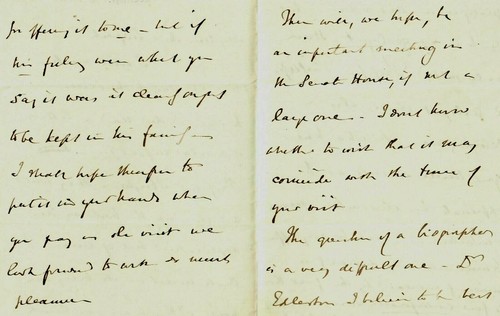 for offering it to me - but if
his feeling were what you
say it was it clearly ought
to be kept in his family -
I shall hope therefore to
put it in your hands when
you pay us the visit we
look forward to with so much
pleasure
There will, we hope, be
an important meeting in
the Senate House, if not a
large one - I don't know
whether to wish that it may
coincide with the time of
your visit
The question of a biographer
is a very difficult one - Dr
Edleston I believe to be best